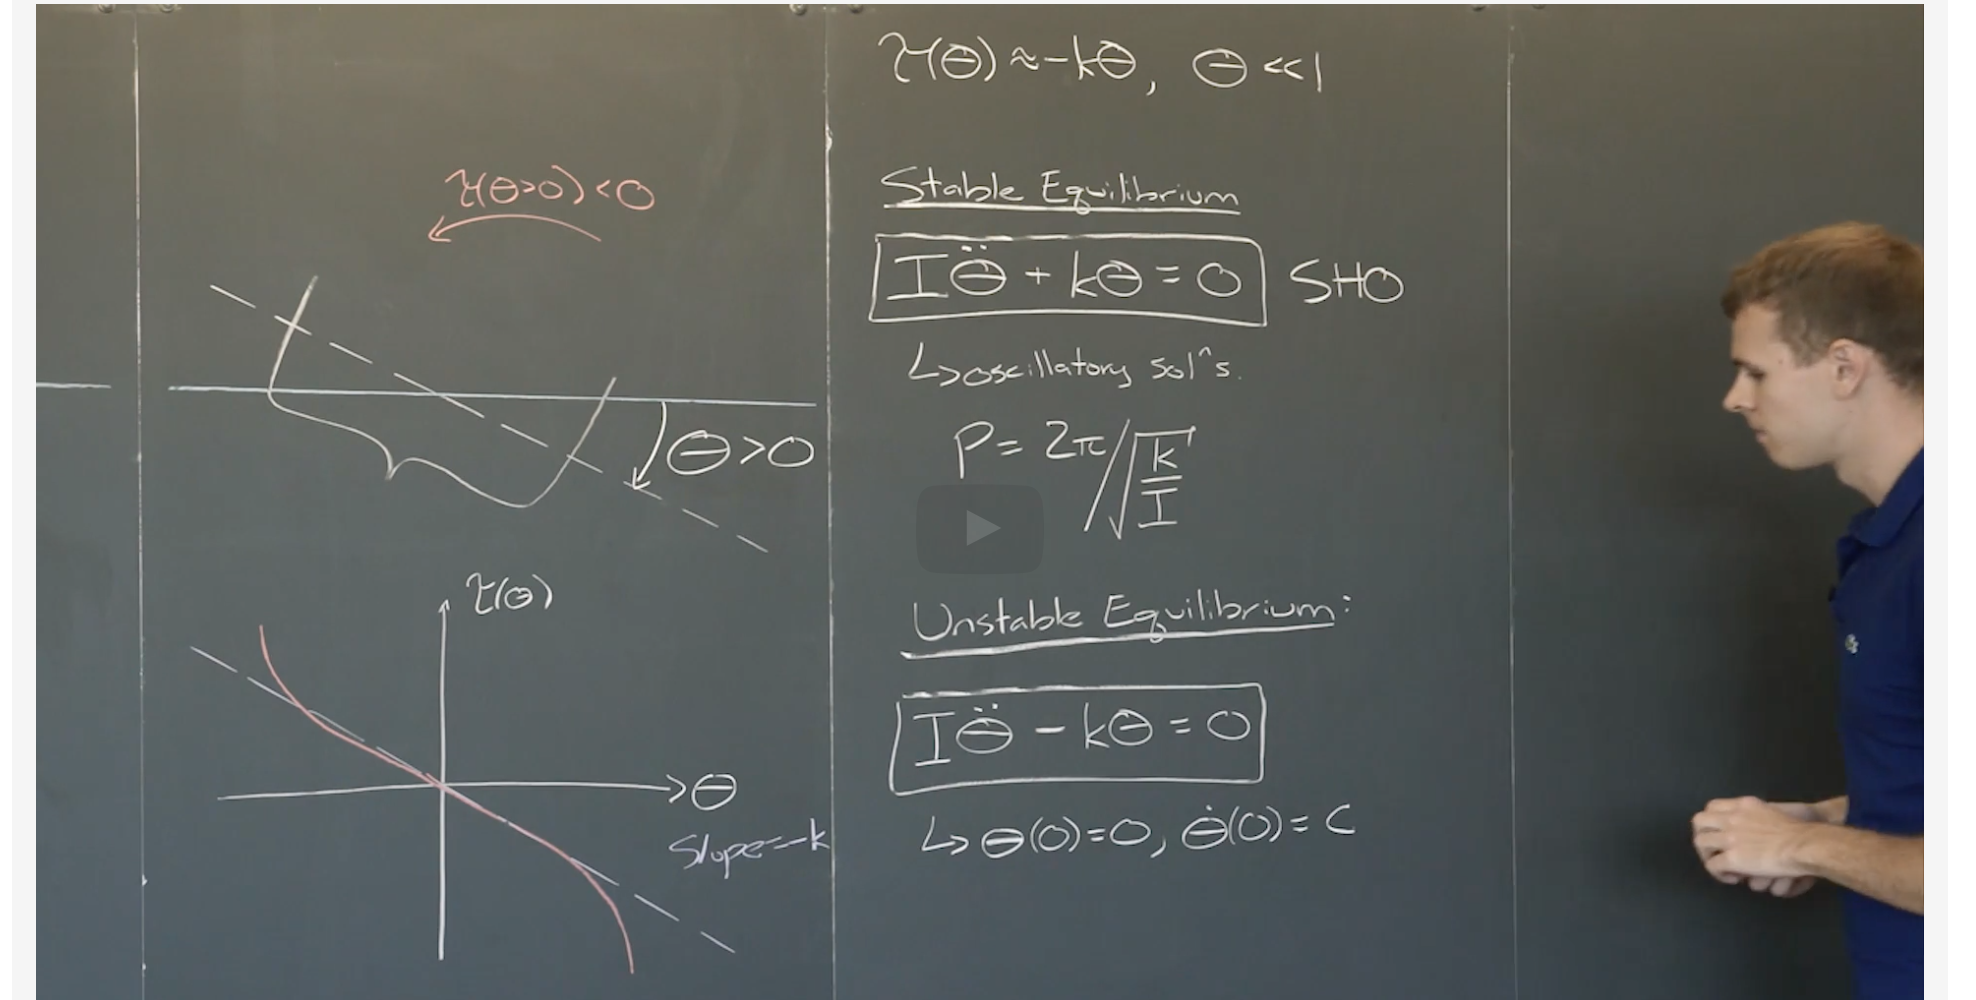 τ(θ>0)<0
θ>0
τ(θ)
θ
Slope=-k
τ(θ)≈-kθ, θ≪1
Stable Equilibrium
Iθ̈ + kθ = 0 SHO
↳ oscillatory sol^s.
P = 2π/√(k/I)
Unstable Equilibrium:
Iθ̈ - kθ = 0
↳ θ(0)=0, θ̇(0)= C